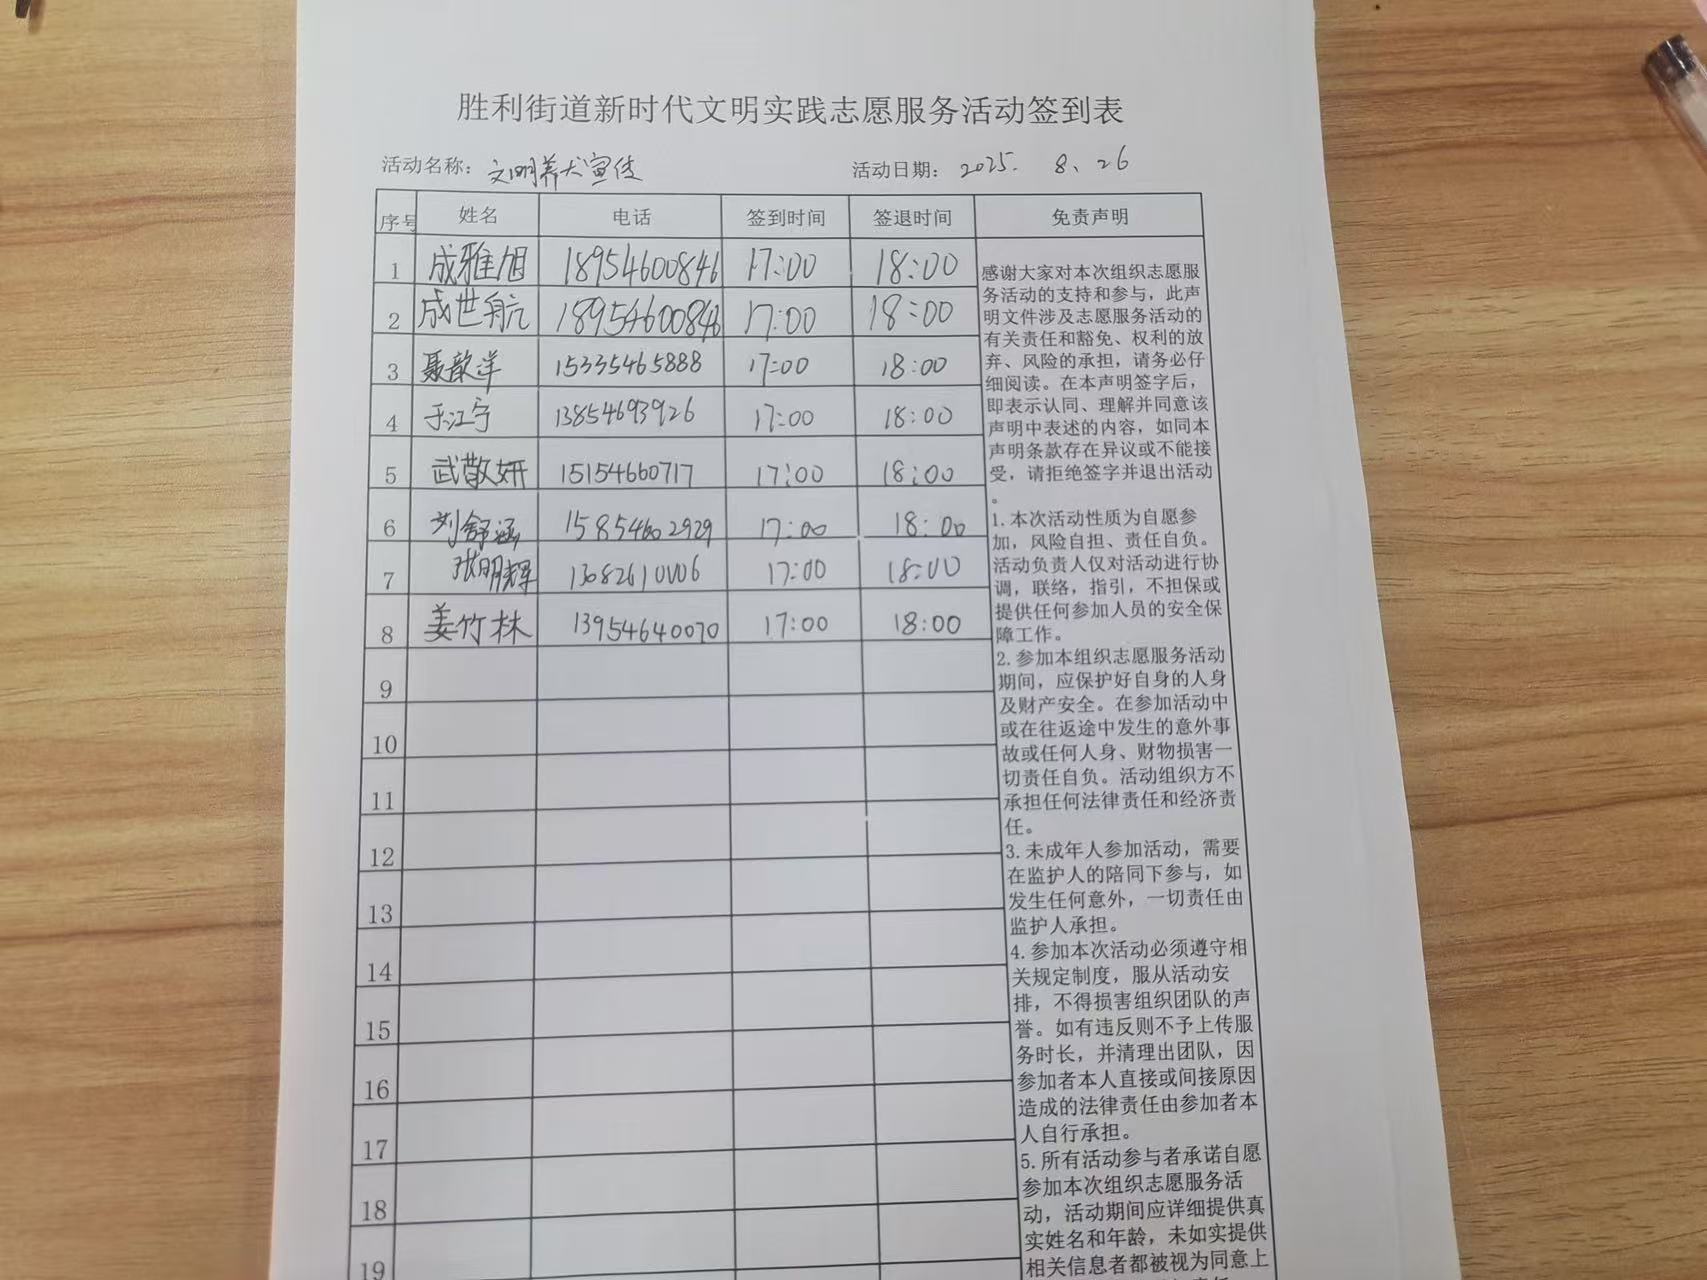 胜利街道新时代文明实践志愿服务活动签到表
活动名称：文明养犬宣传 活动日期：2025. 8、26
序号 姓名 电话 签到时间 签退时间 免责声明
1 成雅旭 18954600846 17:00 18:00
2 成世航 18954600846 17:00 18:00
3 聂歆洋 15335465888 17:00 18:00
4 于江宁 13854693926 17:00 18:00
5 武敬妍 15154660717 17:00 18:00
6 刘舒涵 15854602929 17:00 18:00
7 张明辉 17:00 18:00
8 姜竹林 13954640070 17:00 18:00
9
10
11
12
13
14
15
16
17
18
19
感谢大家对本次组织志愿服
务活动的支持和参与，此声
明文件涉及志愿服务活动的
有关责任和豁免、权利的放
弃、风险的承担，请务必仔
细阅读。在本声明签字后，
即表示认同、理解并同意该
声明中表述的内容，如同本
声明条款存在异议或不能接
受，请拒绝签字并退出活动
。
1.本次活动性质为自愿参
加，风险自担、责任自负。
活动负责人仅对活动进行协
调，联络，指引，不担保或
提供任何参加人员的安全保
障工作。
2.参加本组织志愿服务活动
期间，应保护好自身的人身
及财产安全。在参加活动中
或在往返途中发生的意外事
故或任何人身、财物损害一
切责任自负。活动组织方不
承担任何法律责任和经济责
任。
3.未成年人参加活动，需要
在监护人的陪同下参与，如
发生任何意外，一切责任由
监护人承担。
4.参加本次活动必须遵守相
关规定制度，服从活动安
排，不得损害组织团队的声
誉。如有违反则不予上传服
务时长，并清理出团队，因
参加者本人直接或间接原因
造成的法律责任由参加者本
人自行承担。
5.所有活动参与者承诺自愿
参加本次组织志愿服务活
动，活动期间应详细提供真
实姓名和年龄，未如实提供
相关信息者都被视为同意上